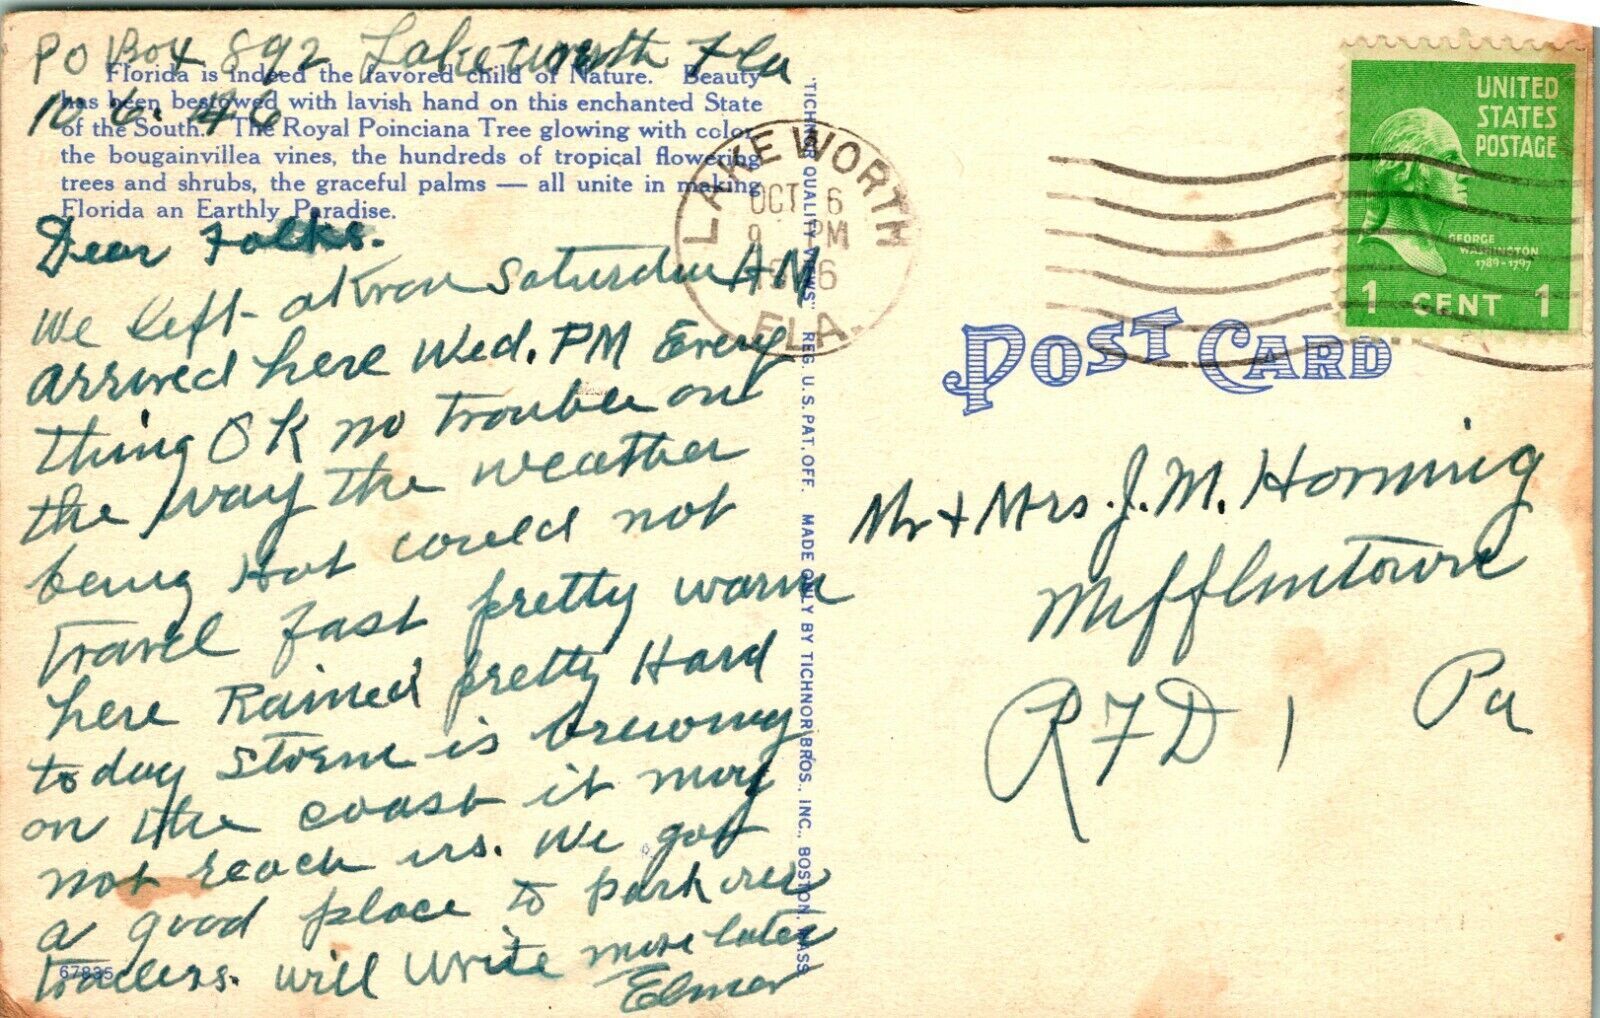 PO Box 892 Lake Worth Fla
10. 6. 46
Florida is indeed the favored child of Nature. Beauty
has been bestowed with lavish hand on this enchanted State
of the South. The Royal Poinciana Tree glowing with color,
the bougainvillea vines, the hundreds of tropical flowering
trees and shrubs, the graceful palms — all unite in making
Florida an Earthly Paradise.
Dear Folks.
We left Akron Saturday AM
arrived here Wed. PM Every
thing OK no trouble on
the way the weather
being Hot could not
travel fast pretty warm
here Rained pretty Hard
today storm is brewing
on the coast it may
not reach us. We got
a good place to park our
trailers. will write more later
Elmer
67835
"TICHNOR QUALITY VIEWS," REG. U. S. PAT. OFF. MADE ONLY BY TICHNOR BROS., INC., BOSTON, MASS.
LAKE WORTH
OCT 6
9 PM
FLA.
UNITED
STATES
POSTAGE
GEORGE
WASHINGTON
1789-1797
1 CENT 1
POST CARD
Mr + Mrs. J. M. Horning
Mifflintown
Pa
RFD 1